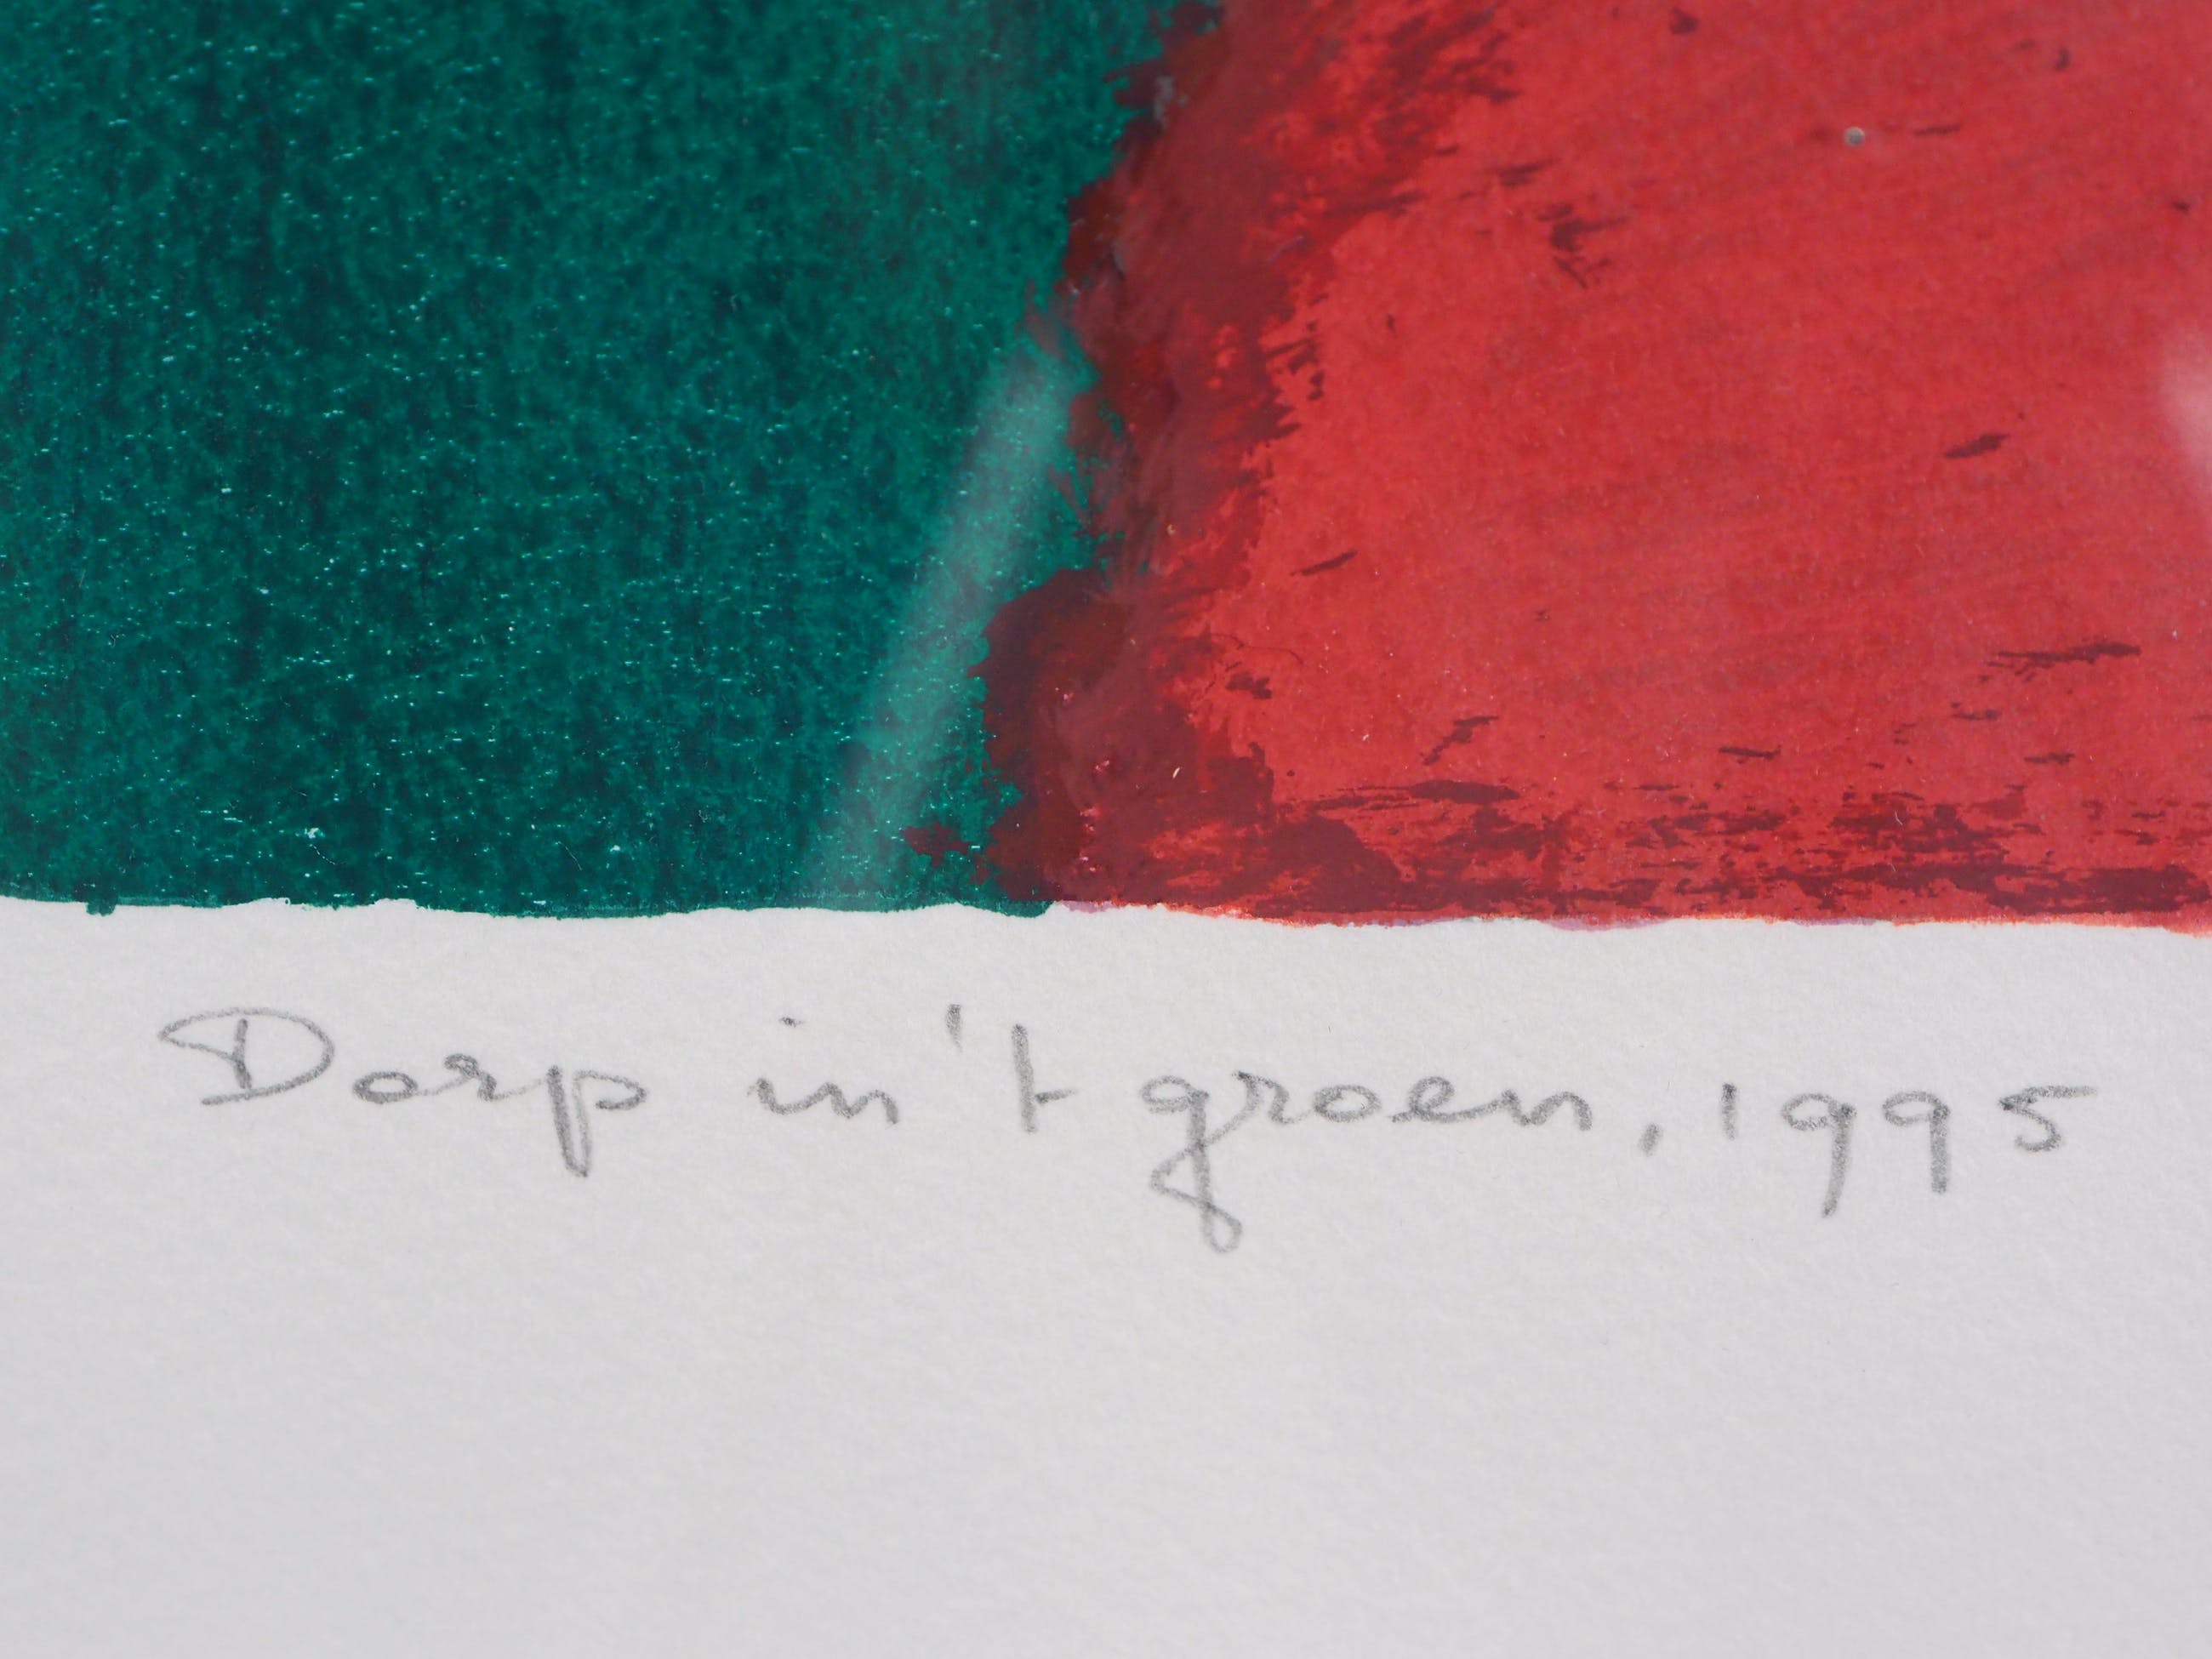 Dorp in 't groen, 1995